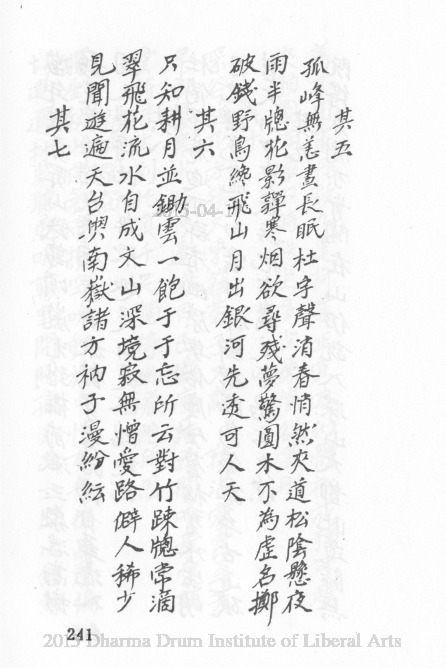 其五
孤峰無恙晝長眠杜宇聲消春悄然夾道松陰懸夜
雨半牕花影嚲寒烟欲尋殘夢驚圓木不為虛名擲
破錢野鳥纔飛山月出銀河先透可人天
其六
只知耕月並鋤雲一飽于于忘所云對竹踈牕常滴
翠飛花流水自成文山深境寂無憎愛路僻人稀少
見聞遊遍天台與南嶽諸方衲子漫紛紜
其七
241
2015 Dharma Drum Institute of Liberal Arts